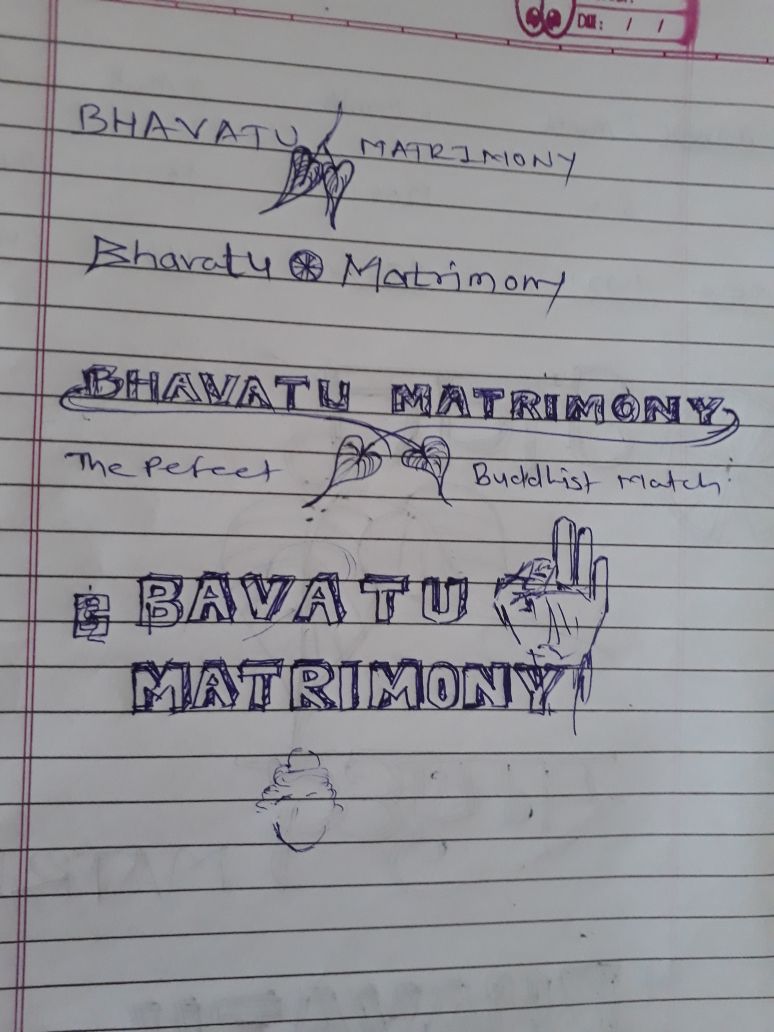 DIII: / /
BHAVATU MATRIMONY
Bhavatu Matrimony
BHAVATU MATRIMONY
The Pefect Buddhist Match
BAVATU
MATRIMONY